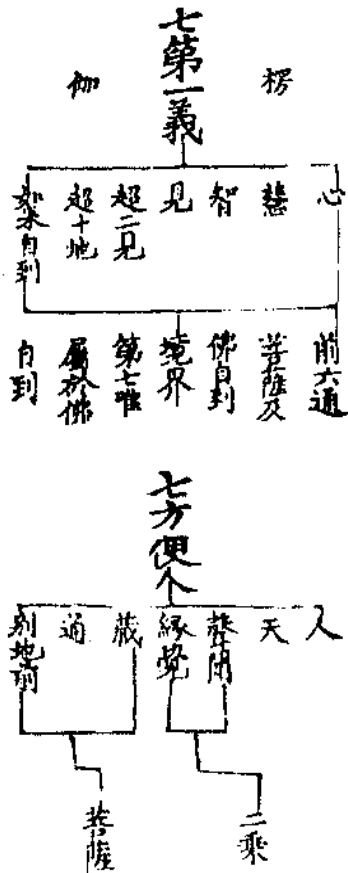 七第一義
楞
伽
心
慧
智
見
超二見
超十地
如来自到
前六通
菩薩及
佛自到
境界
第七唯
屬於佛
自到
七方便人
人
天
聲聞
縁覺
藏
通
別地前
二乘
菩薩